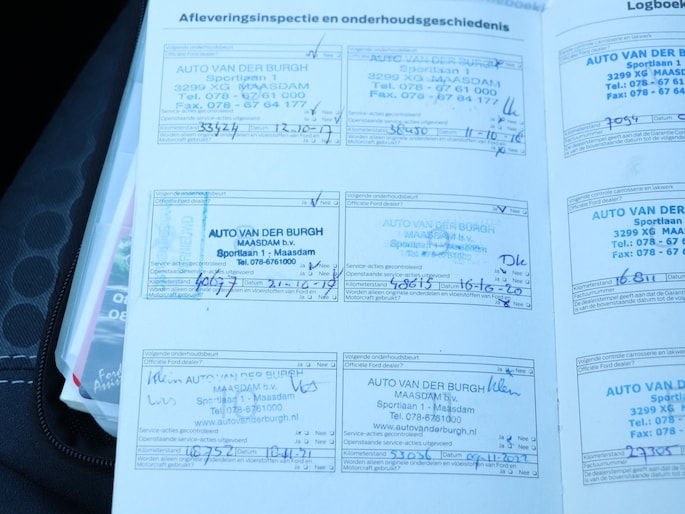 Afleveringsinspectie en onderhoudsgeschiedenis
Volgende onderhoudsbeurt
Officiële Ford dealer? Ja Nee
AUTO VAN DER BURGH
Sportlaan 1
3299 XG MAASDAM
Tel. 078 - 67 61 000
Fax. 078 - 67 64 177
Service-acties gecontroleerd Ja Nee
Openstaande service-acties uitgevoerd Ja Nee
Kilometerstand 33424 Datum 12-10-17
Worden alleen originele onderdelen en vloeistoffen van Ford en
Motorcraft gebruikt? Ja Nee
Volgende onderhoudsbeurt
Officiële Ford dealer? Ja Nee
AUTO VAN DER BURGH
Sportlaan 1
3299 XG MAASDAM
Tel. 078 - 67 61 000
Fax. 078 - 67 64 177
Service-acties gecontroleerd
Openstaande service-acties uitgevoerd Ja Nee
Kilometerstand Datum
Worden alleen originele onderdelen en vloeistoffen van Ford en
Motorcraft gebruikt? Nee
Volgende onderhoudsbeurt
Officiële Ford dealer? Ja Nee
AUTO VAN DER BURGH
MAASDAM b.v.
Sportlaan 1 - Maasdam
Tel. 078-6761000
Service-acties gecontroleerd Ja Nee
Openstaande service-acties uitgevoerd Ja Nee
Kilometerstand 40677 Datum 21-10-19
Worden alleen originele onderdelen en vloeistoffen van Ford en
Motorcraft gebruikt? Ja Nee
Volgende onderhoudsbeurt
Officiële Ford dealer? Nee
AUTO VAN DER BURGH
MAASDAM b.v.
Sportlaan 1 - Maasdam
Service-acties gecontroleerd Ja Nee
Openstaande service-acties uitgevoerd Ja Nee
Kilometerstand 48615 Datum 16-10-20
Worden alleen originele onderdelen en vloeistoffen van Ford en
Motorcraft gebruikt? Nee
Volgende onderhoudsbeurt
Officiële Ford dealer? Ja Nee
Klein AUTO VAN DER BURGH
MAASDAM b.v.
Sportlaan 1 - Maasdam
Tel. 078-6761000
www.autovanderburgh.nl
Service-acties gecontroleerd Ja Nee
Openstaande service-acties uitgevoerd Ja Nee
Kilometerstand Datum
Worden alleen originele onderdelen en vloeistoffen van Ford en
Motorcraft gebruikt? Ja Nee
Volgende onderhoudsbeurt
Officiële Ford dealer? Nee
AUTO VAN DER BURGH Klein
MAASDAM b.v.
Sportlaan 1 - Maasdam
Tel. 078-6761000
www.autovanderburgh.nl
Service-acties gecontroleerd Ja Nee
Openstaande service-acties uitgevoerd Ja Nee
Kilometerstand 53036 Datum 09-11-2022
Worden alleen originele onderdelen en vloeistoffen van Ford en
Motorcraft gebruikt? Ja Nee
Logboek
Volgende controle carrosserie en lakwerk
AUTO VAN DER B
Sportlaan 1
3299 XG MAASD
Tel.: 078 - 67 61
Fax: 078 - 67 64
Kilometerstand 7094
Volgende controle carrosserie en lakwerk
AUTO VAN DER
Sportlaan 1
3299 XG MAAS
Tel.: 078 - 67
Fax: 078 - 67
Kilometerstand 16.811
Factuurnummer
Volgende controle carrosserie en lakwerk
AUTO VAN D
Sportlaan
3299 XG M
Tel.: 078
Fax: 078 - 6
Kilometerstand 27305
Factuurnummer